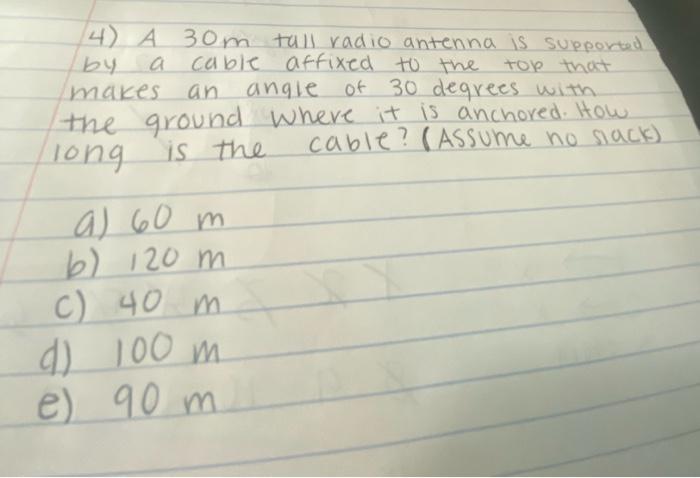 4) A 30m tall radio antenna is supported
by a cable affixed to the top that
makes an angle of 30 degrees with
the ground where it is anchored. How
long is the cable? (Assume no slack)
a) 60 m
b) 120 m
c) 40 m
d) 100 m
e) 90 m